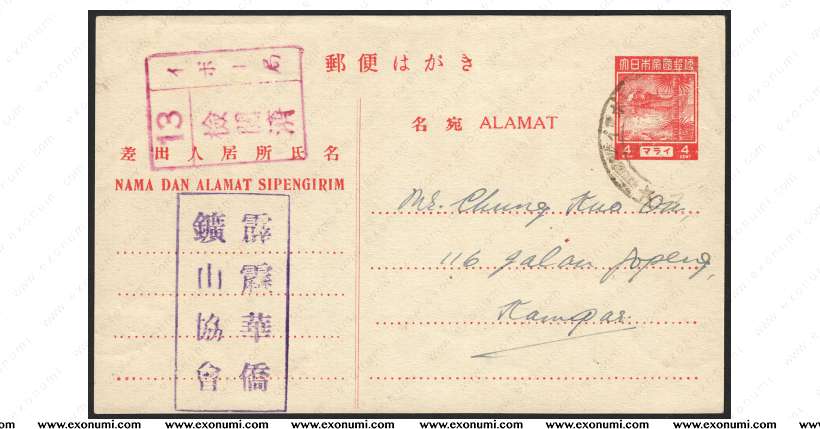 郵便はがき
大日本帝國郵便
4 マライ 4
CENT CENT
13
検閲済
名宛 ALAMAT
差出人居所氏名
NAMA DAN ALAMAT SIPENGIRIM
霹靂華僑
鑛山協會
Mr. Chung Kuo
116 Jalan Jopeng,
Kampar.
www.exonumi.com www.exonumi.com www.exonumi.com www.exonumi.com www.exonumi.com